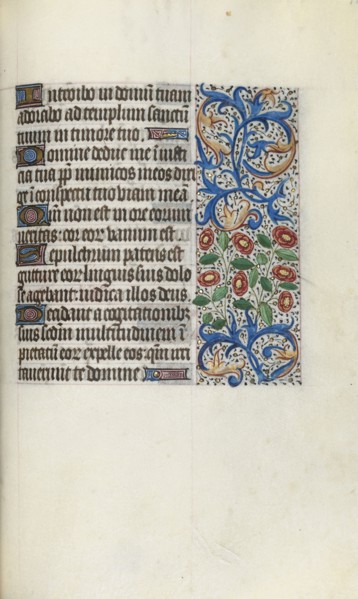 Introibo in domū tuam
adorabo ad templum sanctū
tuum in timore tuo
Domine deduc me ī iusti
cia tua pp̄ inimicos meos diri
ge ī conspectu tuo viam meā
Qm̄ non est in ore eorum
veritas: cor eoꝝ vanum est
Sepulchrum patens est
guttur eoꝝ linguis suis dolo
se agebant: iudica illos deus.
Decidant a cogitationibꝫ
suis scđm multitudinem ī
pietatū eoꝝ expelle eos: qm̄ irri
tauerunt te domine